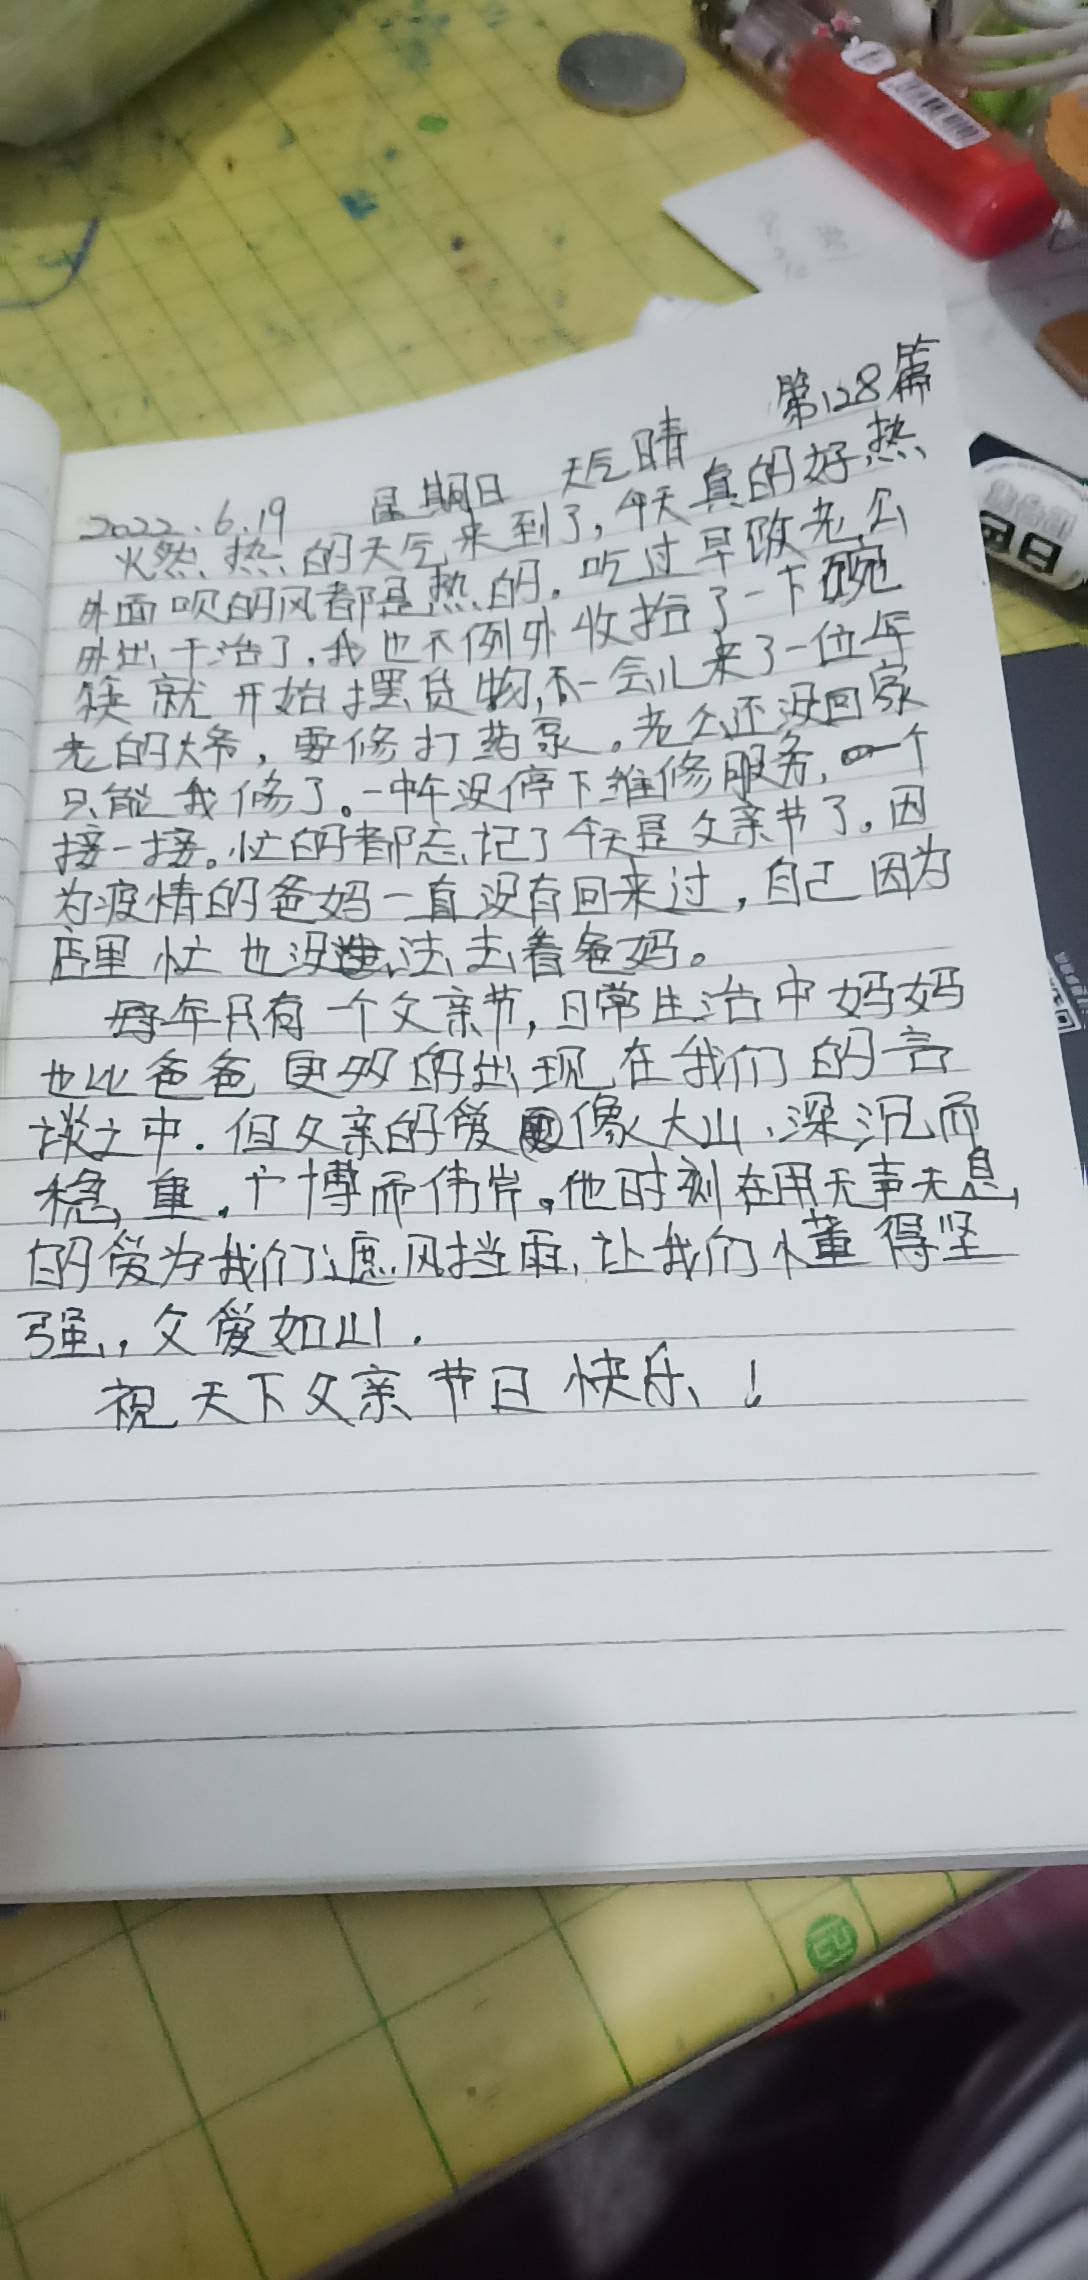 第128篇
2022.6.19 星期日 天气晴
火然热的天气来到了,今天真的好热
外面吹的风都是热的。吃过早饭老公
外出干活了,我也不例外收拾了一下碗
筷就开始摆货物,不一会儿来了一位年
老的大爷,要修打药泵。老公还没回家
只能我修了。一中午没停下维修服务,一个
接一接。忙的都忘记了今天是父亲节了。因
为疫情的爸妈一直没有回来过,自己因为
店里忙也没法去看爸妈。
每年只有一个父亲节,日常生活中妈妈
也比爸爸更多的出现在我们的言
谈之中.但父亲的爱像大山、深沉而
稳重,广博而伟岸。他时刻在用无声无息
的爱为我们遮风挡雨,让我们懂得坚
强,,父爱如山.
祝天下父亲节日快乐!